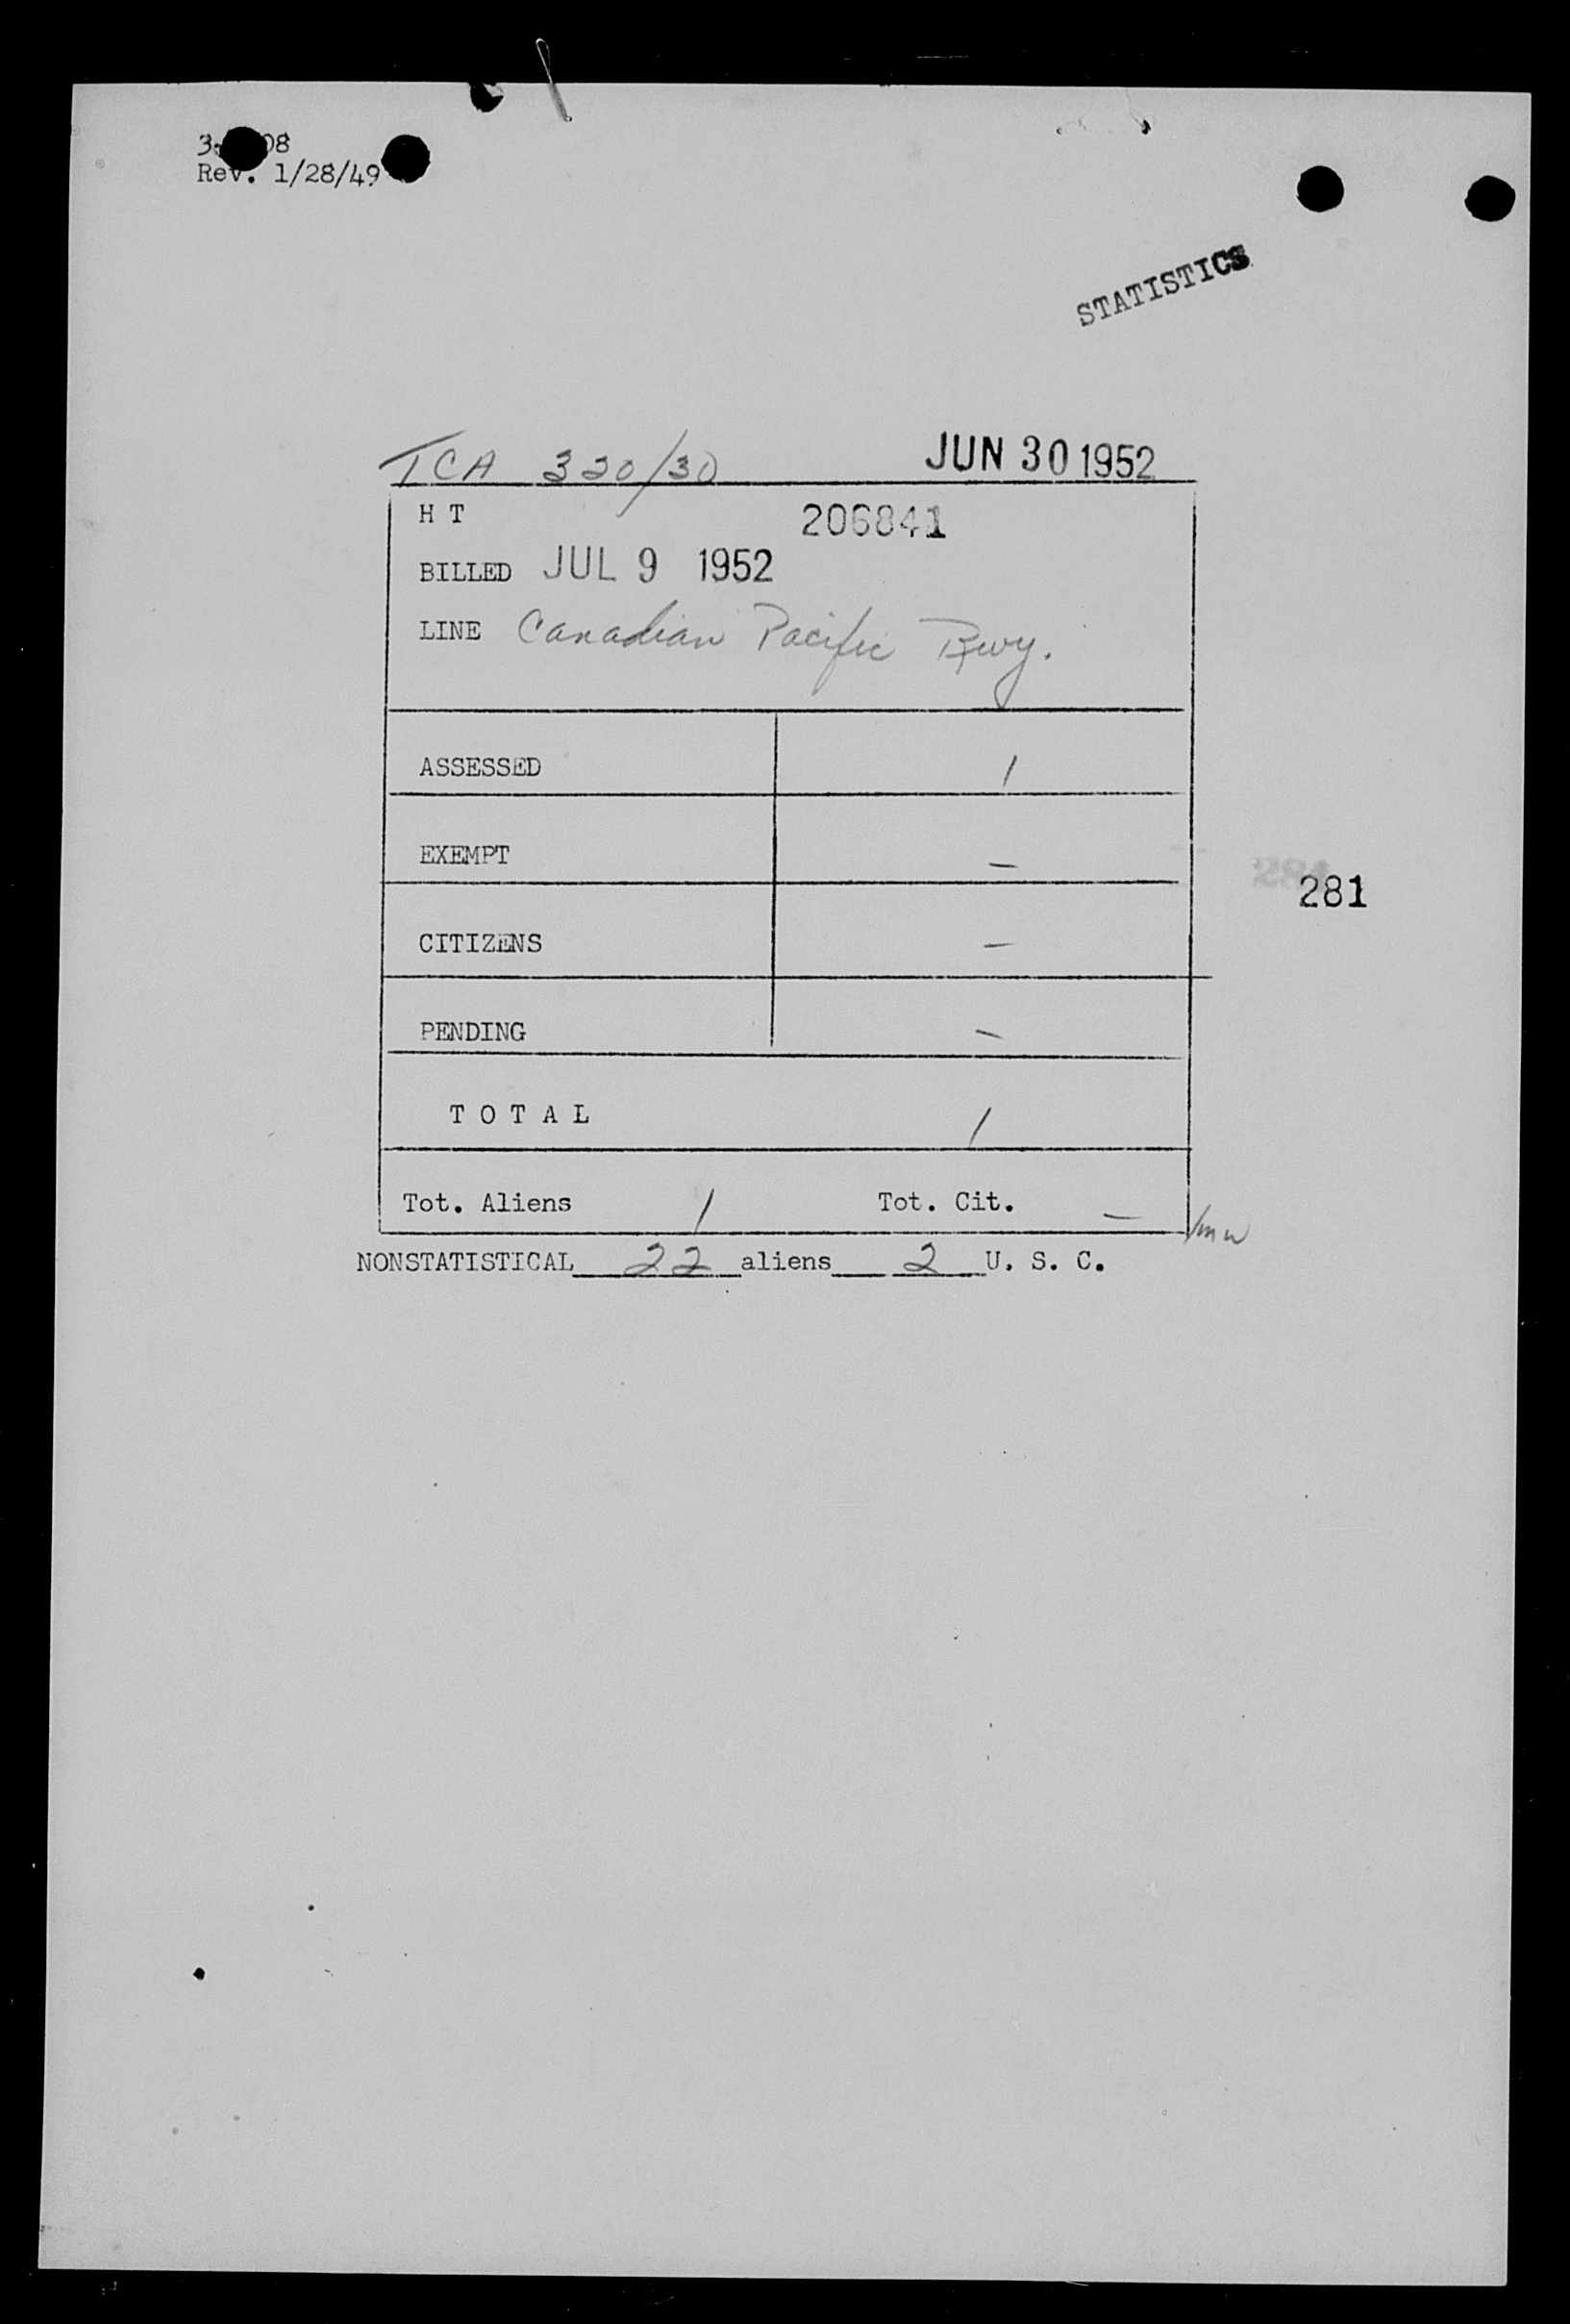 08
Rev. 1/28/49
STATISTICS
TCA 320/30 JUN 30 1952
H T 206841
BILLED JUL 9 1952
LINE Canadian Pacific Rwy.
ASSESSED 1
EXEMPT –
281
CITIZENS –
PENDING –
T O T A L 1
Tot. Aliens 1 Tot. Cit. –
NONSTATISTICAL 22 aliens 2 U. S. C.